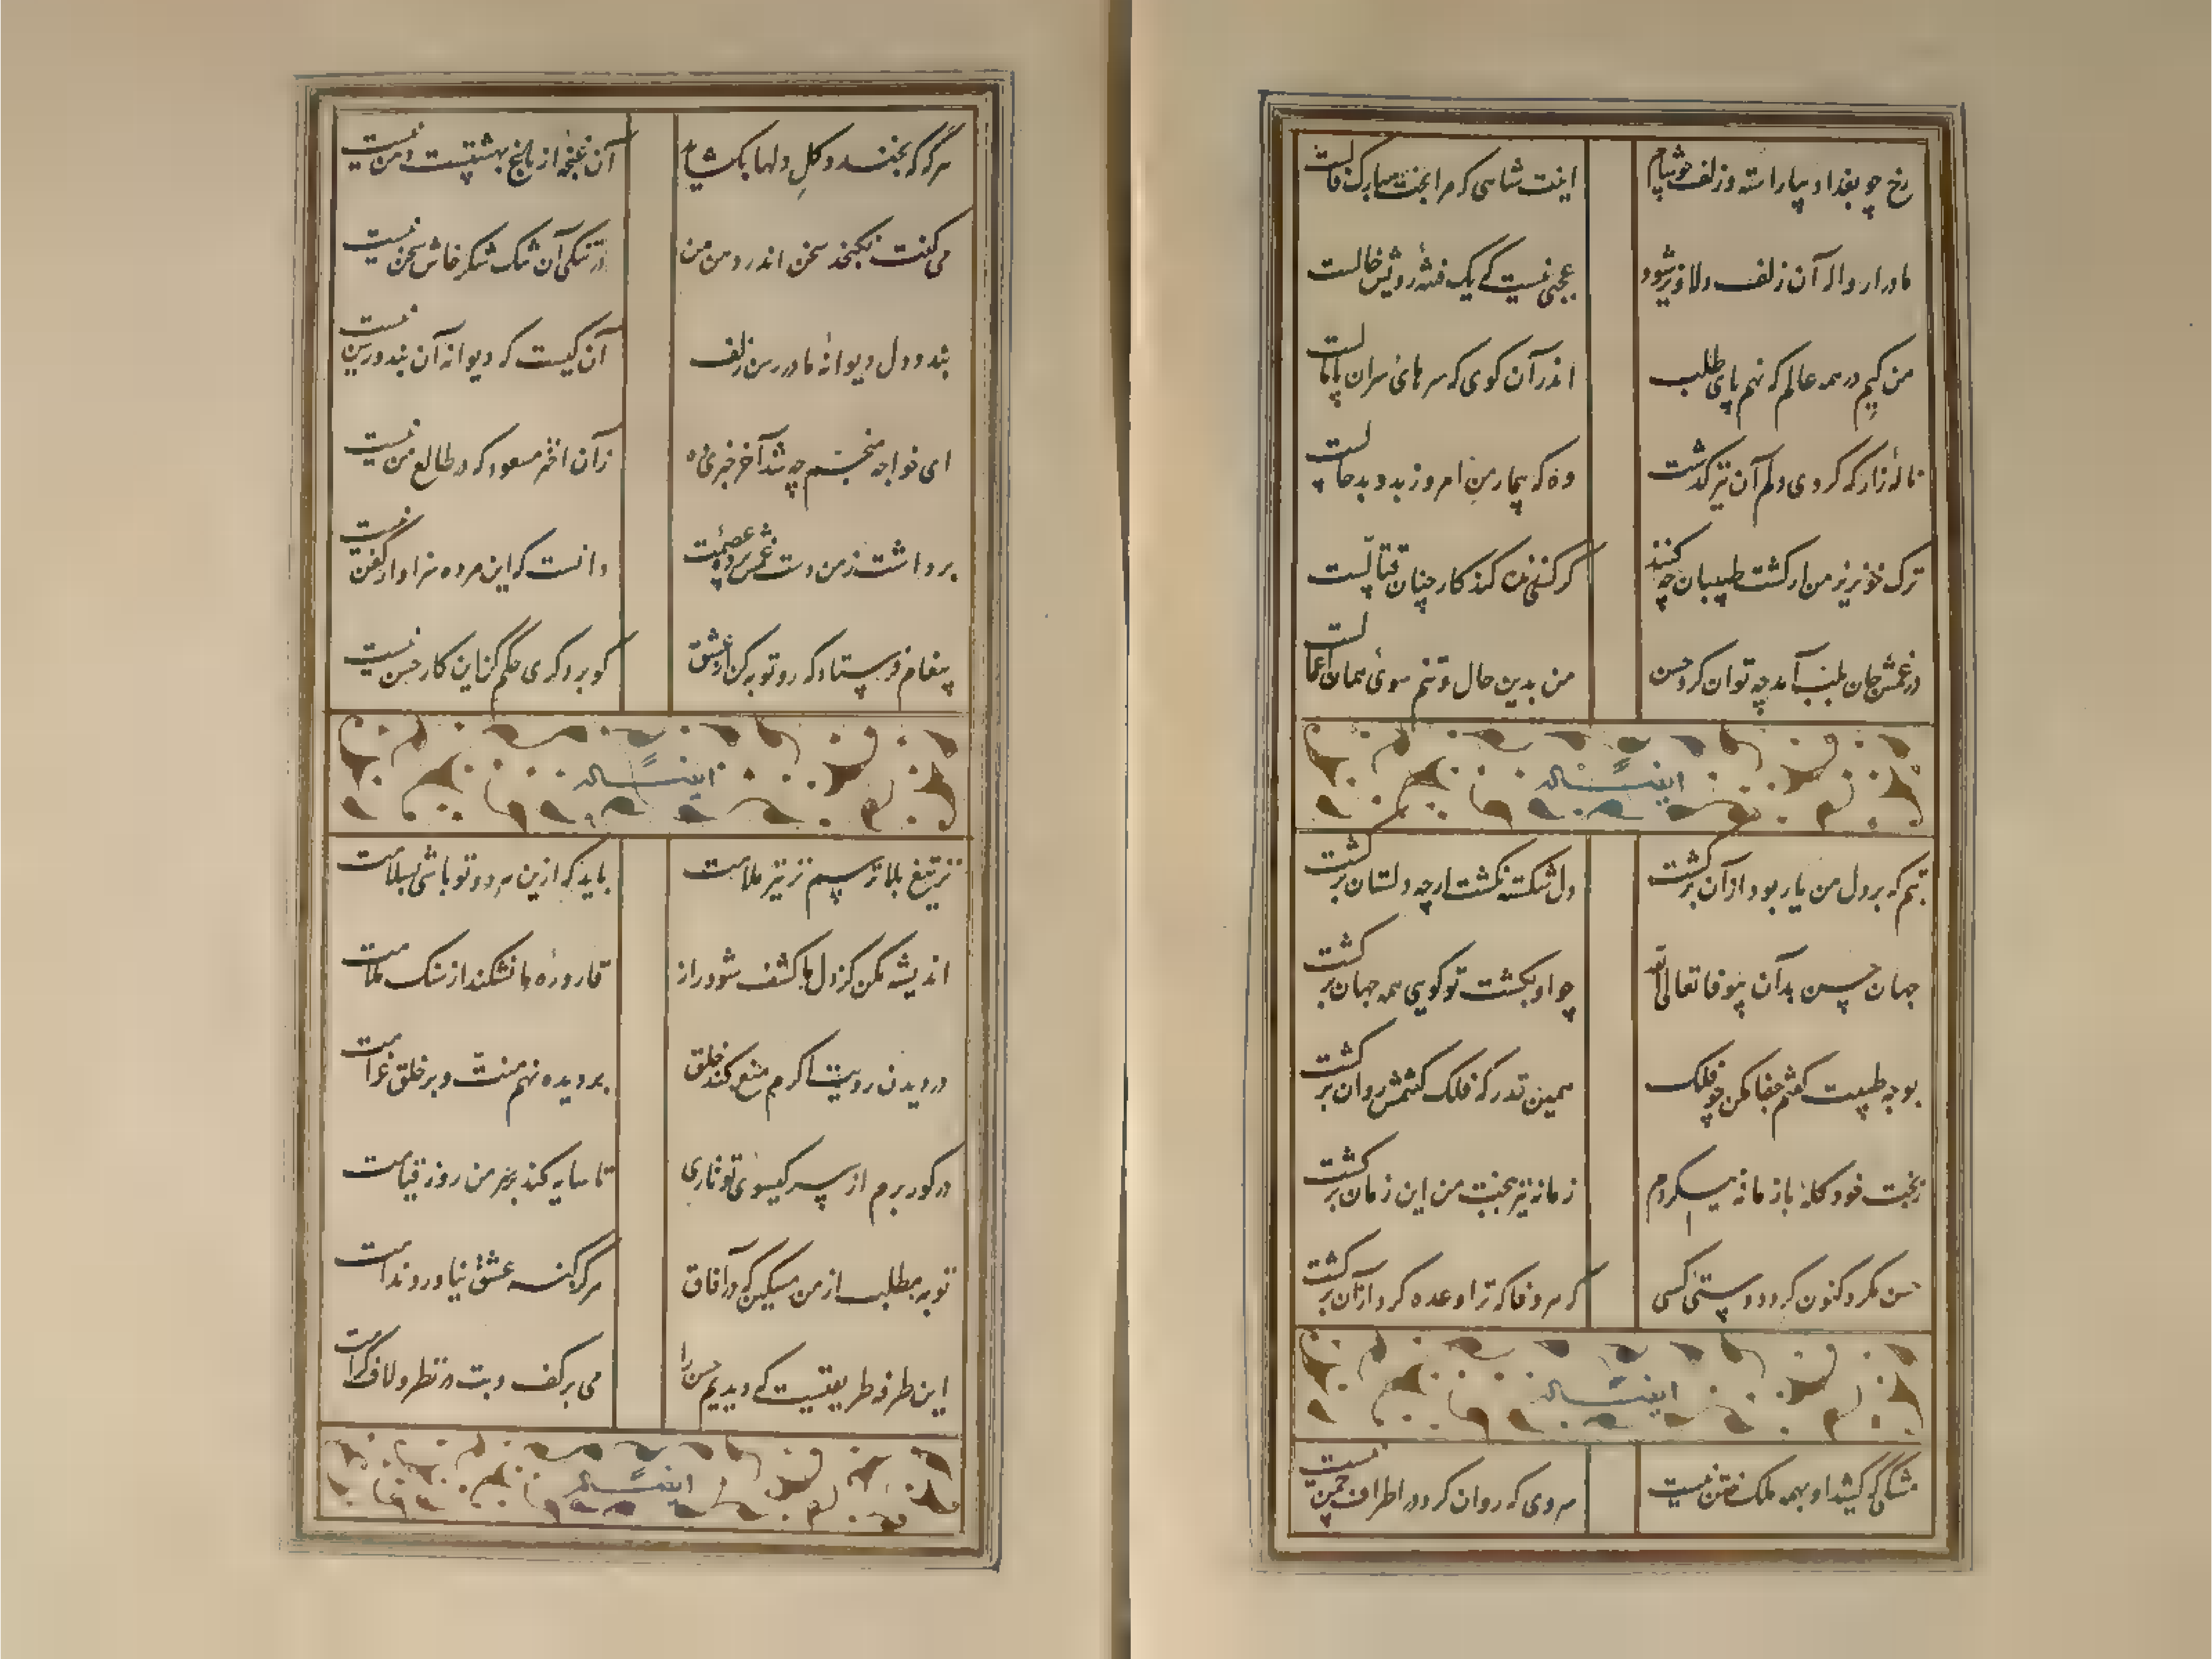 رخ چو بغداد بیاراسته وز زلف چو شام اینت شاهی که مرا بخت مبارک فالست
مادر ار واله آن زلف دلاویز شود عجبی نیست که یک فتنه رویش خالست
من کیم در همه عالم که نهم پای طلب اندر آن کوی که سرهای سران پامالست
ناله زار که کردی دلم آن نیز گذشت وه که بیمار من امروز بدو بد حالست
ترک خونریز من ار کشت طبیبان چه کنند گر کند کار چنان قتالست
در غمش جان بلب آمد چه توان کرد حسن من بدین حال و تنم سوی همان اعمالست
ایضاً له
بتم که بر دل من یار بود ازان برگشت دل شکسته نگشت ارچه دلستان برگشت
جهان حسن بدآن بیوفا تعالی الله چو او بگشت تو گویی همه جهان برگشت
بوجه طیبت گفتم جفا مکن چو فلک همین قدر که فلک گفتمش روان برگشت
ز بخت خود گله با زمانه میکردم زمانه نیز ببخت من این زمان برگشت
حسن مگرد کنون گرد دوستی کسی که هر وفا که ترا وعده کرد ازان برگشت
ایضاً له
مشکی که گیسوی او بهمه ملک ختن نیست سروی که روان کرد در اطراف چمن نیست
هرگه که بخندد و گل دلها بگشاید آن غنچه از باغ بهشتست و من نیست
می گفت نگنجد سخن اندر دهن من در تنگی آن تنگ شکر خاش سخن نیست
بند دو دل دیوانه ما در رسن زلف آن کیست که دیوانه آن بند و رسن نیست
ای خواجه منجم چه شد آخر خبری ده زآن اختر مسعود که در طالع من نیست
برداشت ز من دست غمش عصمت دانست که این مرده سزاوار کفن نیست
پیغام فرستاد که رو توبه کن از عشق گو برو دگری حکم کن این کار حسن نیست
ایضاً له
نز تیغ بلا ترسم نز تیر ملامت باید که ازین هر دو تو باشی بسلامت
اندیشه مکن کز دل ما کشف شود راز قاروره ما نشکند از سنگ ملامت
در دیدن رویت اگرم منع کند خلق بر دیده نهم منت و بر خلق غرامت
در گور برم از سر گیسوی تو تاری تا سایه کند بر سر من روز قیامت
توبه مطلب از من مسکین که در آفاق هرگز گنه عشق نیاورد ندامت
این طرفه طریقیست که دیدیم حسن را می بر کف و بت در نظر و لاف کرامت
ایضاً له